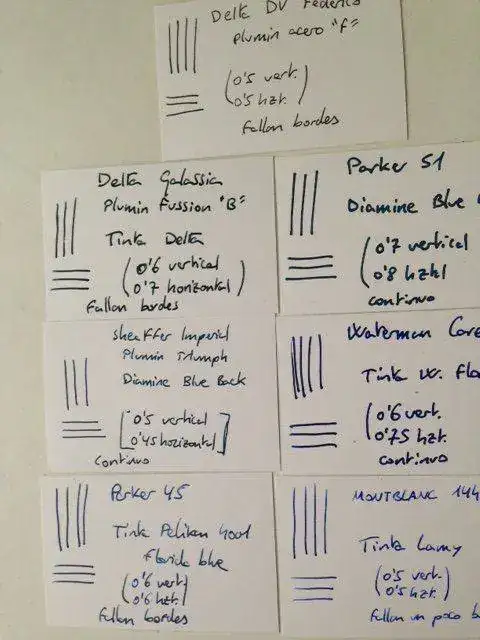 Delta DV Federico
plumin acero "F"
(0'5 vert.
0'5 hzt.)
fallan bordes
Delta Galassia
Plumin Fussion "B"
Tinta Delta
(0'6 vertical
0'7 horizontal)
fallan bordes
Parker 51
Diamine Blue
(0'7 vertical
0'8 hztl
continuo
Sheaffer Imperial
Plumin Triumph
Diamine Blue Back
[0'5 vertical
0'45 horizontal]
continuo
Waterman Care
Tinta W. Flo
(0'6 vert.
0'75 hzt.
continuo
Parker 45
Tinta Pelikan 4001
florida blue
(0'6 vert.
0'6 hzt.)
fallan bordes
MONTBLANC 144
Tinta Lamy
(0'5 vert.
0'5 hzt.)
fallan un poco b